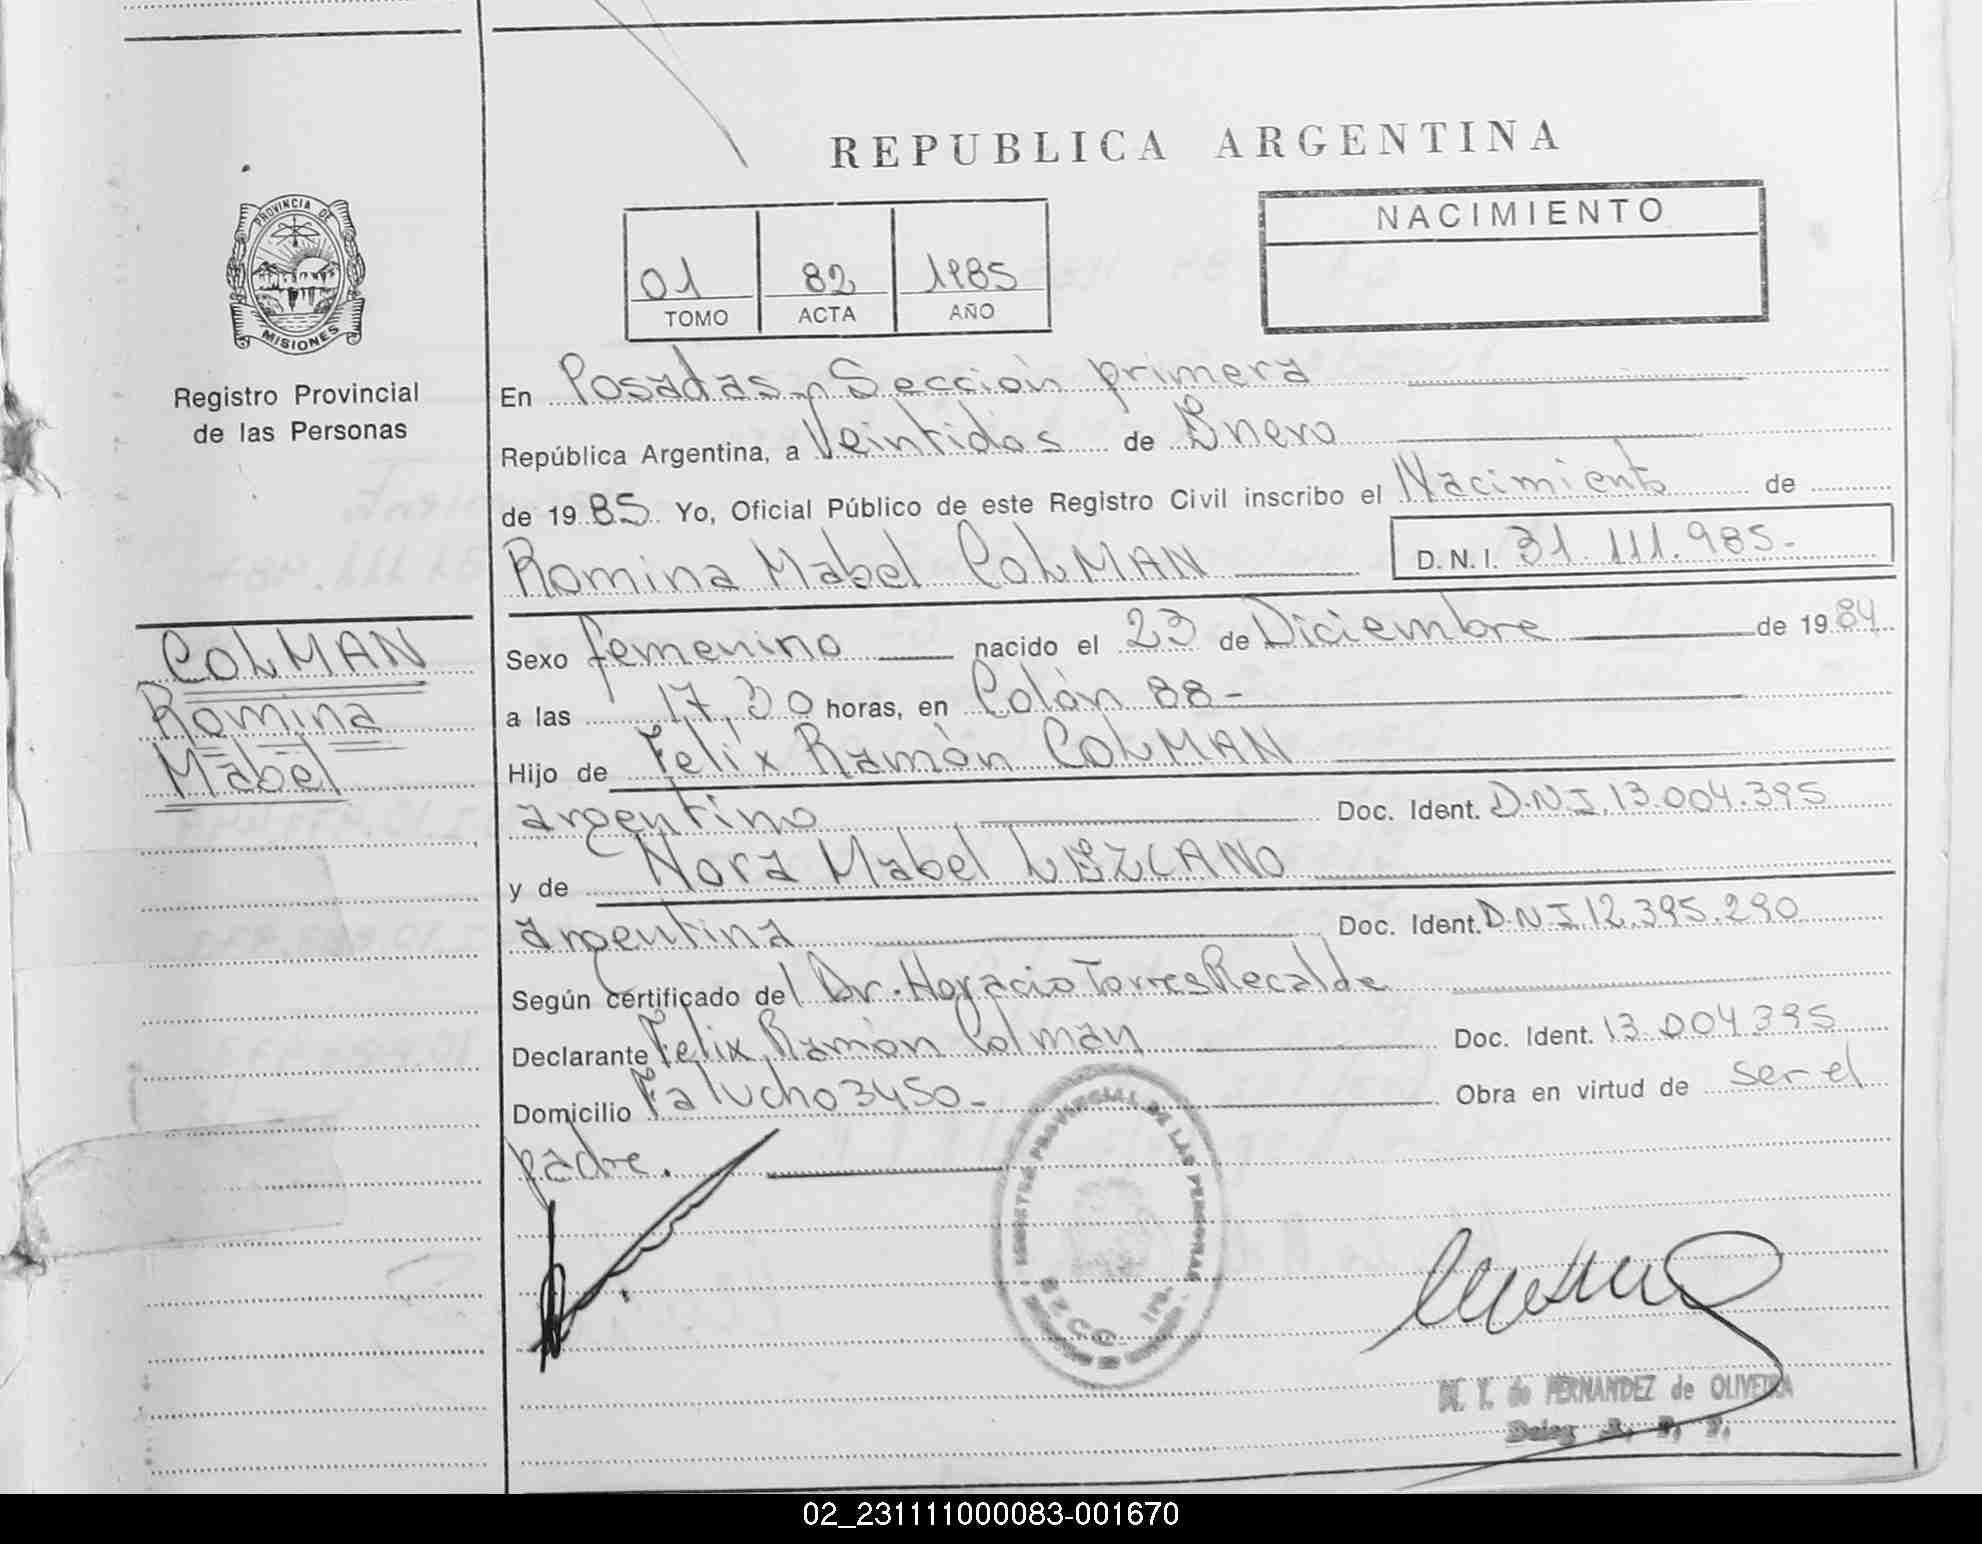 REPUBLICA ARGENTINA
PROVINCIA DE
MISIONES
Registro Provincial
de las Personas
01 82 1985
TOMO ACTA AÑO
NACIMIENTO
En Posadas Sección primera
República Argentina, a Veintidos de Enero
de 1985 Yo, Oficial Público de este Registro Civil inscribo el Nacimiento de
Romina Mabel COLMAN D.N.I. 31.111.985.-
COLMAN
Romina
Mabel
Sexo femenino nacido el 23 de Diciembre de 1984
a las 17,30 horas, en Colón 88-
Hijo de Felix Ramón COLMAN
argentino Doc. Ident. D.N.I. 13.004.395
y de Nora Mabel LEZCANO
argentina Doc. Ident. D.N.I. 12.395.290
Según certificado del Dr. Horacio Torres Recalde
Declarante Felix Ramón Colman Doc. Ident. 13.004.395
Domicilio Falucho 3450- Obra en virtud de ser el
padre.
PROVINCIAL DE LAS PERSONAS
de FERNANDEZ de OLIVEIRA
Deleg
02_231111000083-001670